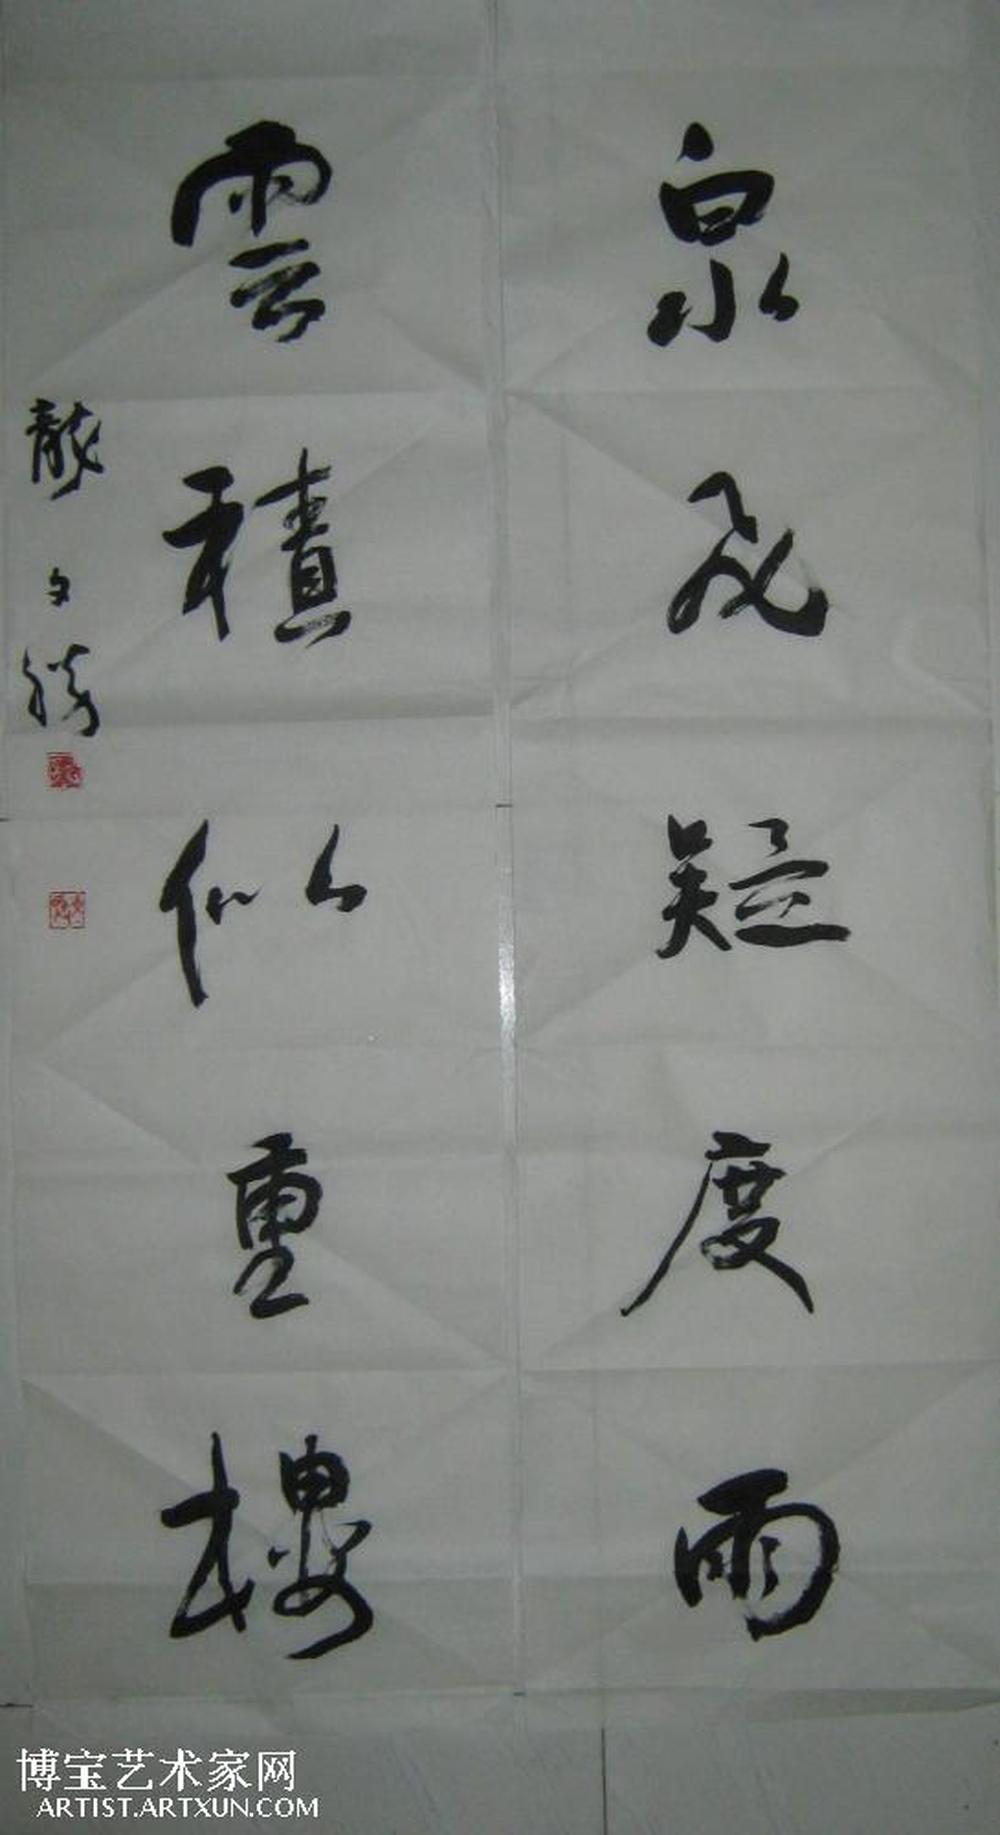 泉飛疑度雨
雲積似重樓
龍文勝
博宝艺术家网
ARTIST.ARTXUN.COM